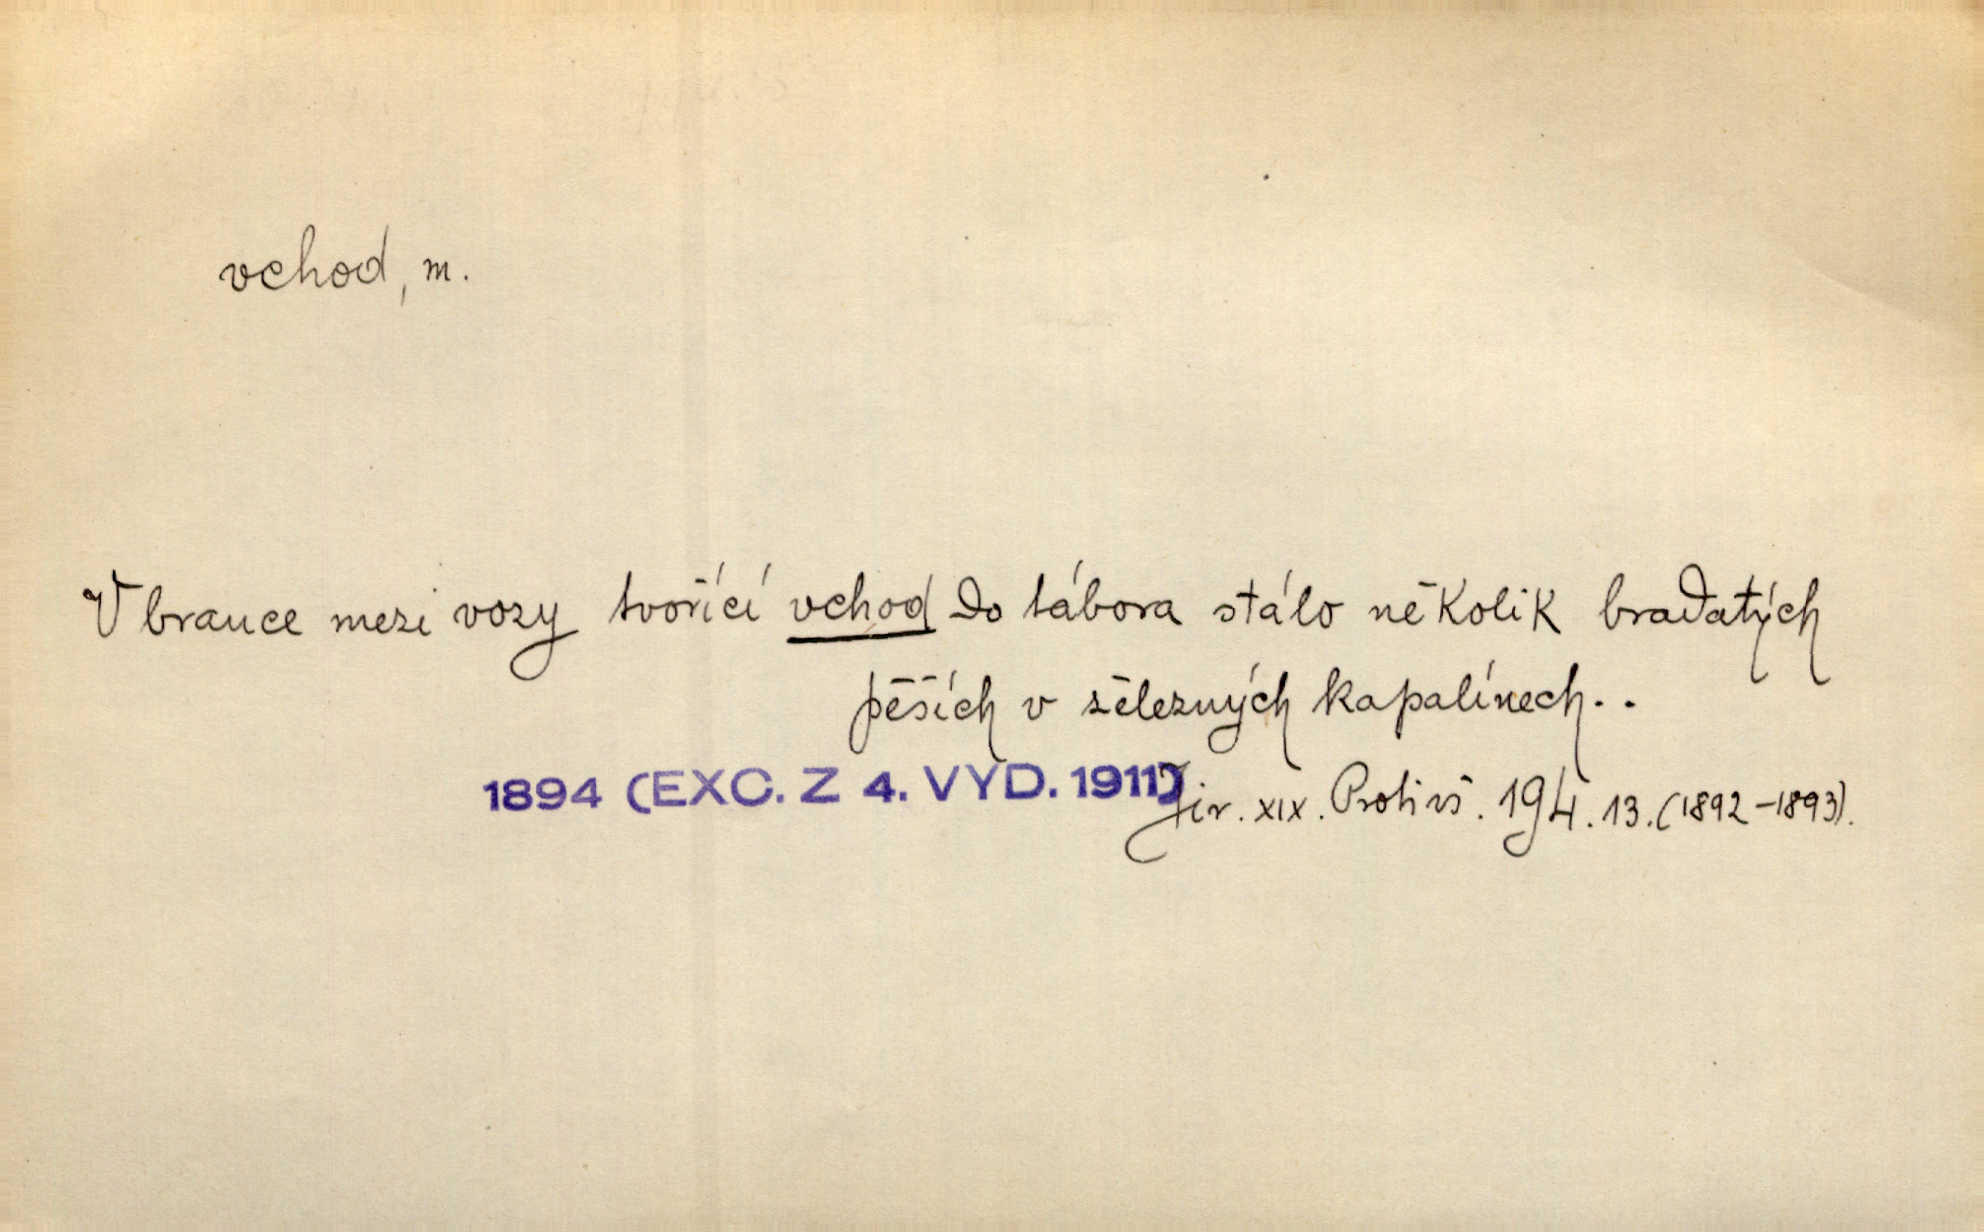 vchod, m.
V brance mezi vozy tvořící vchod do tábora stálo několik bradatých
pěších v železných kapalínech..
1894 (EXC. Z 4. VYD. 1911)
Jir. XIX. Proti vš. 194. 13. (1892–1893).